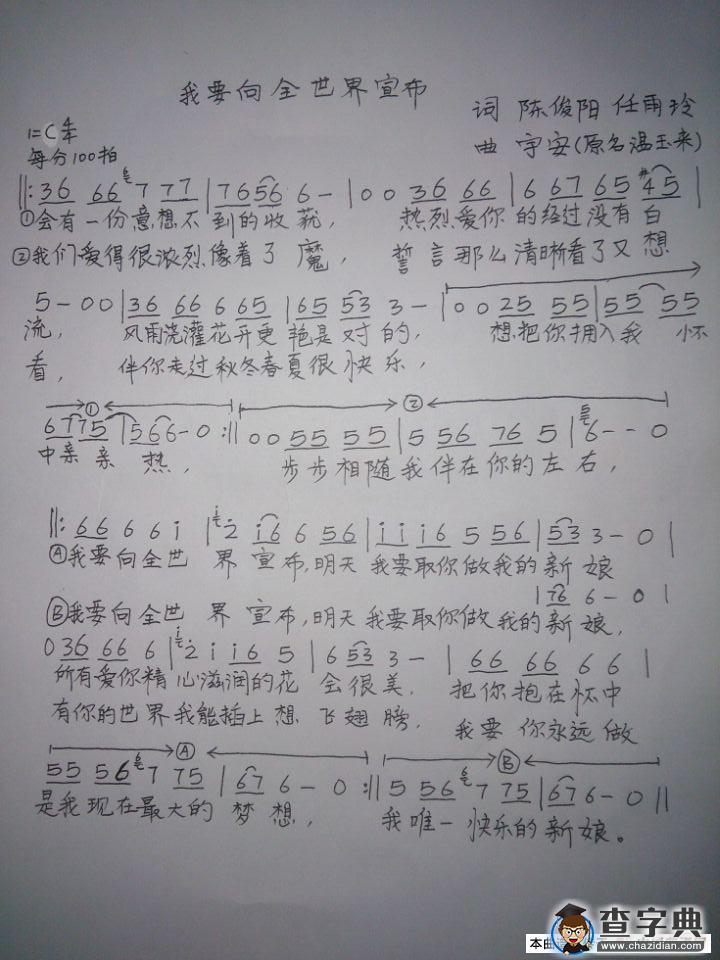 我要向全世界宣布
词 陈俊阳 任雨玲
1=C 4/4
曲 宇安(原名温玉来)
每分100拍
||: 36 66 6 7 77 | 7656 6 - | 0 0 36 66 | 6 67 65 #45 |
①会有一份意想不到的收获, 热烈爱你的经过没有白
②我们爱得很浓烈像着了魔, 誓言那么清晰看了又想
5 - 0 0 | 36 66 6 65 | 65 53 3 - | 0 0 25 55 | 55 55
流, 风雨浇灌花开更艳是对的, 想把你拥入我 怀
看, 伴你走过秋冬春夏很快乐,
① ②
67 75 | 566 - 0 :|| 0 0 55 55 | 5 56 76 5 | 5 6 - - 0
中亲亲热, 步步相随我伴在你的左右,
||: 66 6 6 i | i 2 i6 6 56 | i i i6 5 56 | 53 3 - 0 |
Ⓐ我要向全世 界 宣布,明天 我要取你做我的新娘
| 76 6 - 0 |
Ⓑ我要向全世 界 宣布,明天 我要取你做我的新娘,
0 36 66 6 | i 2 i i6 5 | 6 53 3 - | 66 66 6 6 |
所有爱你精心滋润的花 会很美, 把你抱在怀中
有你的世界我能插上想 飞翅膀, 我要 你永远做
Ⓐ Ⓑ
55 56 6 7 75 | 67 6 - 0 :|| 5 56 6 7 75 | 67 6 - 0 ||
是我现在最大的 梦想, 我唯一快乐的新娘。
查字典
www.chazidian.com
本曲